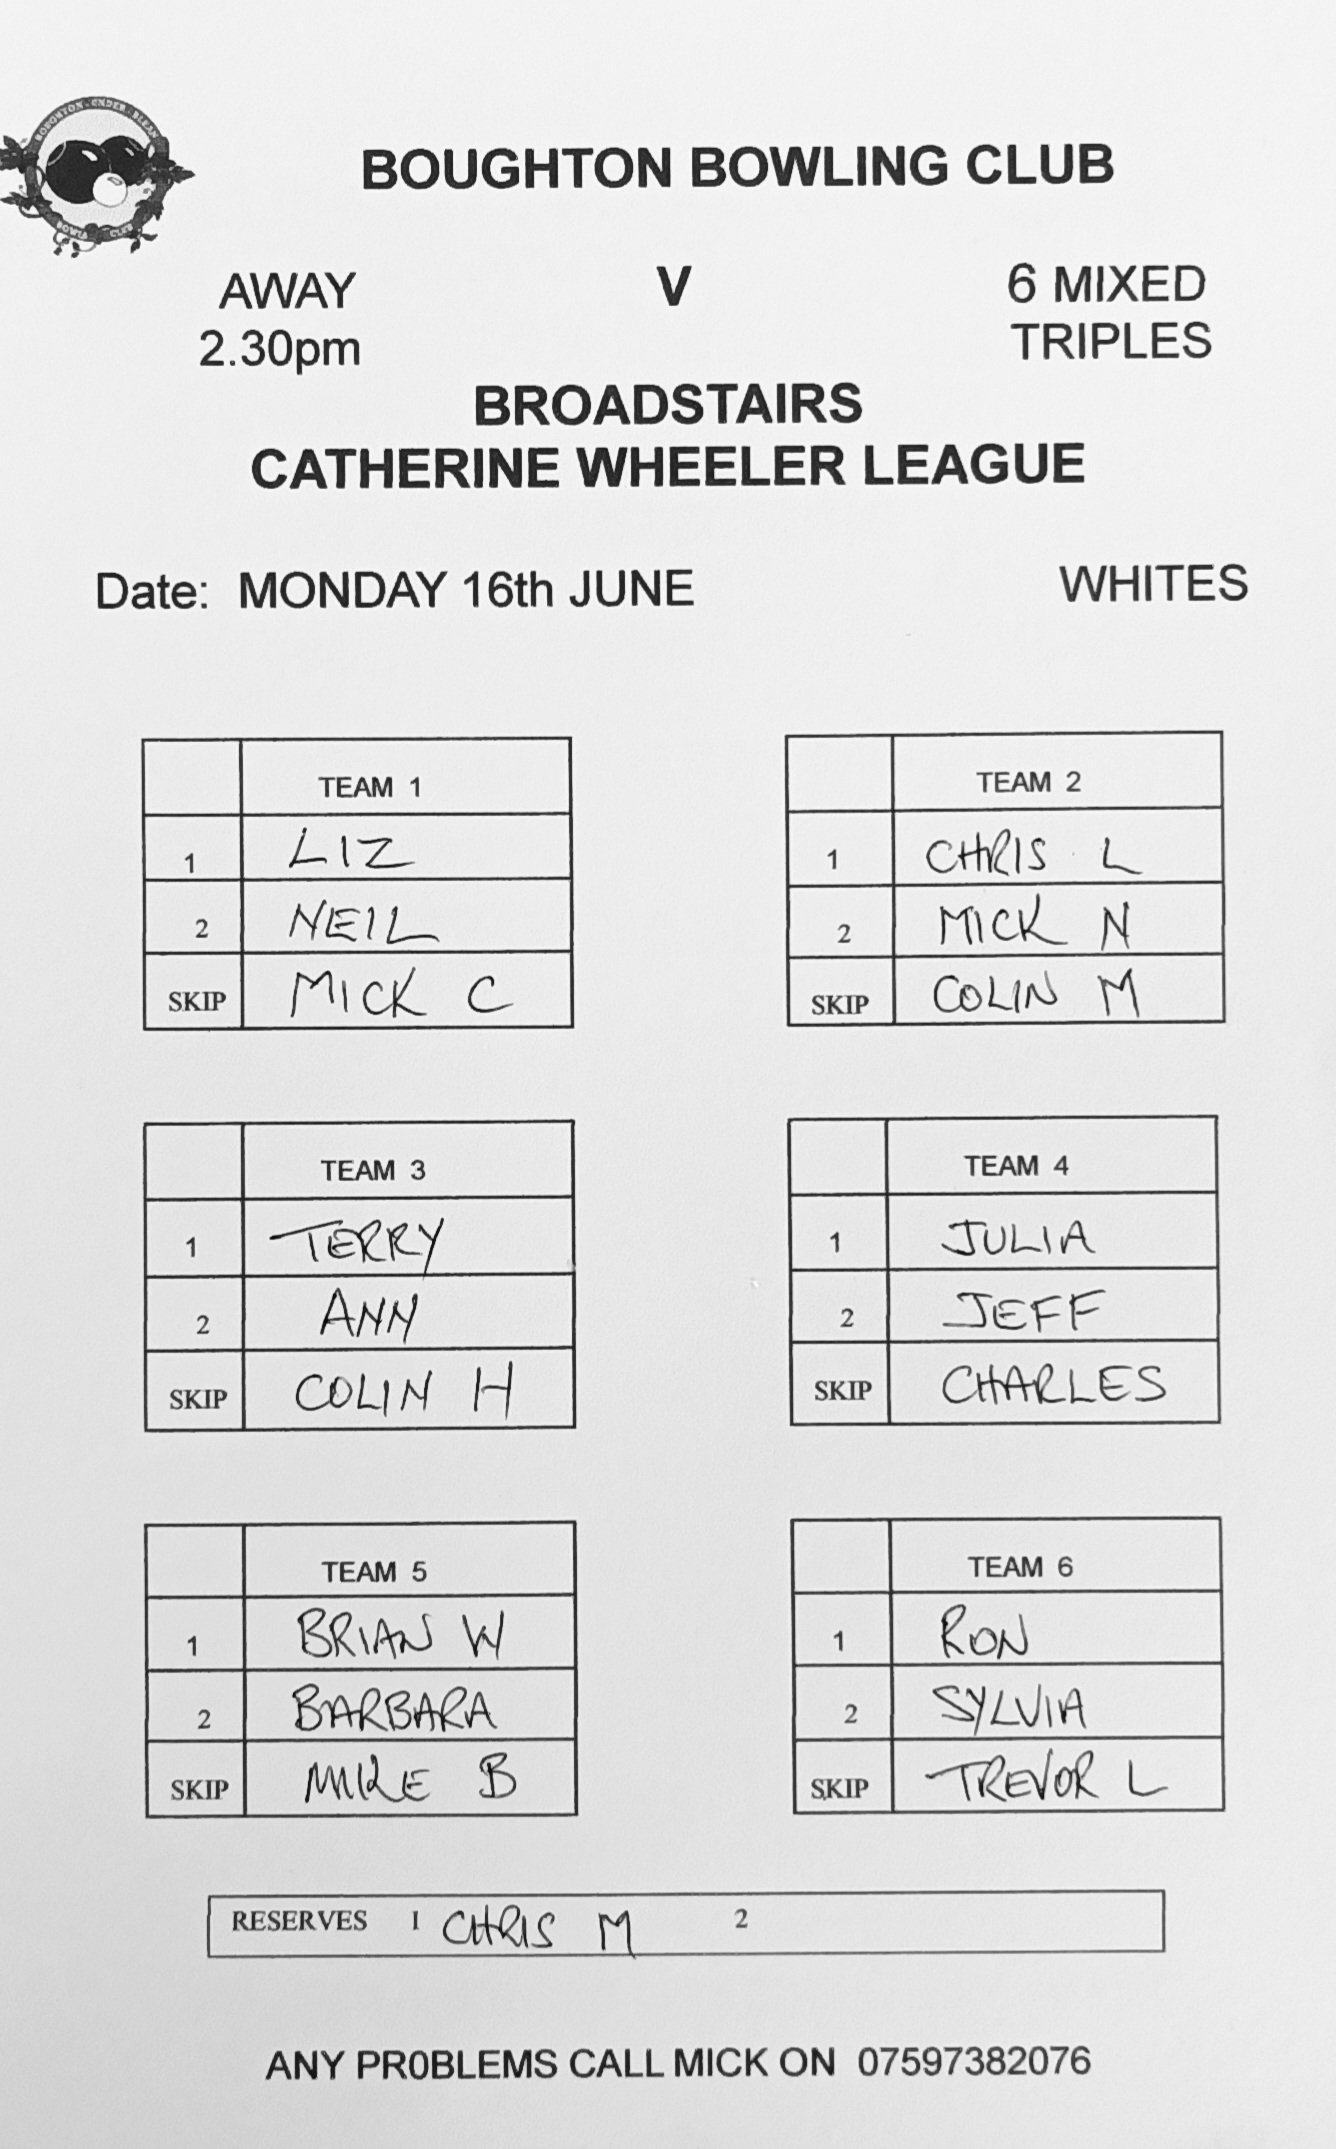 BOUGHTON-UNDER-BLEAN
BOWLS CLUB
BOUGHTON BOWLING CLUB
AWAY V 6 MIXED
2.30pm TRIPLES
BROADSTAIRS
CATHERINE WHEELER LEAGUE
Date: MONDAY 16th JUNE WHITES
TEAM 1
1 LIZ
2 NEIL
SKIP MICK C
TEAM 2
1 CHRIS L
2 MICK N
SKIP COLIN M
TEAM 3
1 TERRY
2 ANN
SKIP COLIN H
TEAM 4
1 JULIA
2 JEFF
SKIP CHARLES
TEAM 5
1 BRIAN W
2 BARBARA
SKIP MIKE B
TEAM 6
1 RON
2 SYLVIA
SKIP TREVOR L
RESERVES 1 CHRIS M 2
ANY PROBLEMS CALL MICK ON 07597382076